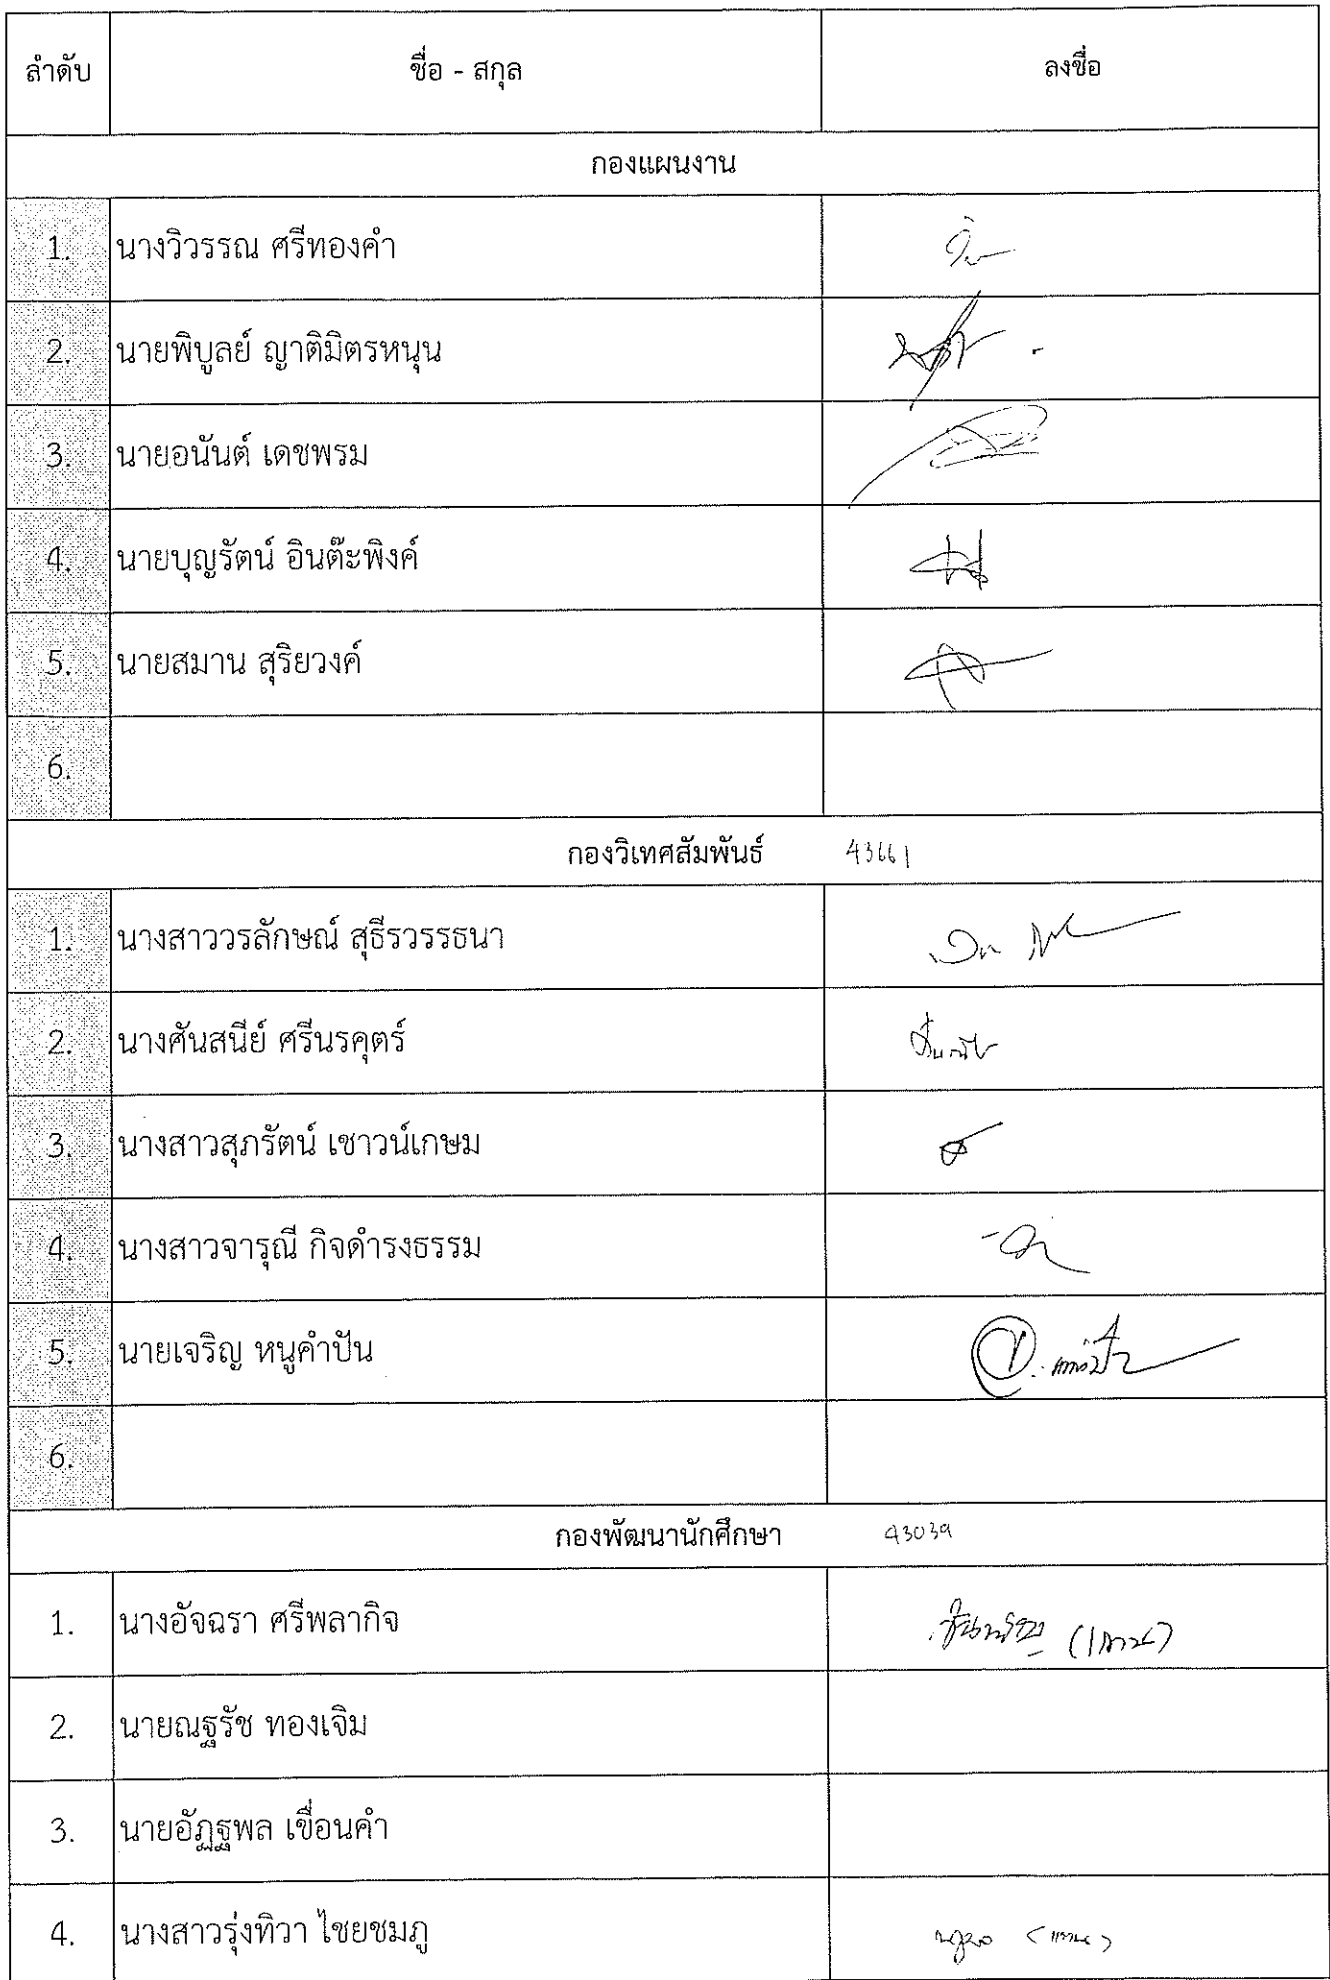 ลำดับ ชื่อ - สกุล ลงชื่อ
กองแผนงาน
1. นางวิวรรณ ศรีทองคำ
2. นายพิบูลย์ ญาติมิตรหนุน
3. นายอนันต์ เดชพรม
4. นายบุญรัตน์ อินต๊ะพิงค์
5. นายสมาน สุริยวงค์
6.
กองวิเทศสัมพันธ์ 43661
1. นางสาววรลักษณ์ สุธีรวรรธนา
2. นางศันสนีย์ ศรีนรคุตร์
3. นางสาวสุภรัตน์ เชาวน์เกษม
4. นางสาวจารุณี กิจดำรงธรรม
5. นายเจริญ หนูคำปัน
6.
กองพัฒนานักศึกษา 43039
1. นางอัจฉรา ศรีพลากิจ (แทน)
2. นายณฐรัช ทองเจิม
3. นายอัฏฐพล เขื่อนคำ
4. นางสาวรุ่งทิวา ไชยชมภู (แทน)